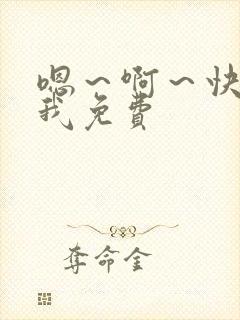 嗯～啊～快
我免费
夺命金